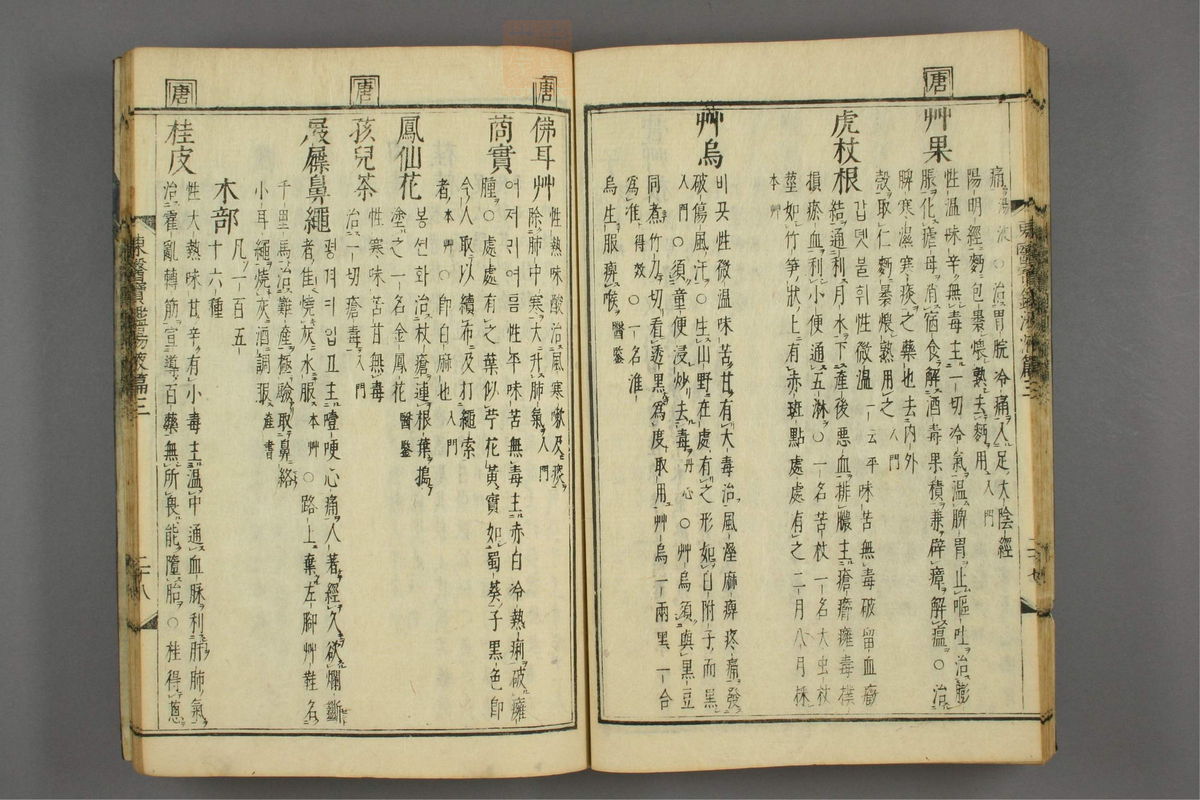 痛湯池○治胃脘冷痛人足太陰經
陽明經麪包裹煨熟去麪用入門
唐
艸果
性溫味辛無毒主一切冷氣溫脾胃止嘔吐治膨
脹化瘧母消宿食解酒毒果積兼辟瘴解瘟○治
脾寒濕寒痰之藥也去內外
殼取仁麪裹煨熟用之入門
虎杖根
감뎻불휘性微溫一云平味苦無毒破留血癥
結通利月水下產後惡血排膿主瘡癤癰毒撲
損瘀血利小便通五淋○一名苦杖一名大虫杖
莖如竹笋狀上有赤斑點處處有之二月八月採
本艸
艸烏
바곳性微溫味苦甘有大毒治風濕麻痺疼痛發
破傷風汗○生山野在處有之形如白附子而黑
入門○須童便浸炒去毒丹心○艸烏須與黑豆
同煮竹刀切看透黑爲度取用艸烏一兩黑一合
爲准得效○一名淮
烏生服痺喉醫鑒
東醫寶鑑湯液篇三
唐
佛耳艸
性熱味酸治風寒嗽及痰
除肺中寒大升肺氣入門
䔛實
어저귀여름性平味苦無毒主赤白冷熱痢破癰
腫○處處有之葉似苧花黃實如蜀葵子黑色卽
今人取以績布及打繩索
者本艸○卽白麻也入門
鳳仙花
봉션화治杖瘡連根葉搗
塗之一名金鳳花醫鑒
唐
孩兒茶
性寒味苦甘無毒
治一切瘡毒入門
屐屧鼻繩
평격지입고主噎哽心痛人著經久欲爛斷
者佳燒灰水服本艸○路上棄左腳艸鞋名
千里馬治難產極驗取鼻絡
小耳繩燒灰酒調服產書
木部
凡一百五
十六種
唐
桂皮
性大熱味甘辛有小毒主溫中通血脉利肝肺氣
治霍亂轉筋宣導百藥無所畏能墮胎○桂得葱
東醫寶鑑湯液篇三
二十八